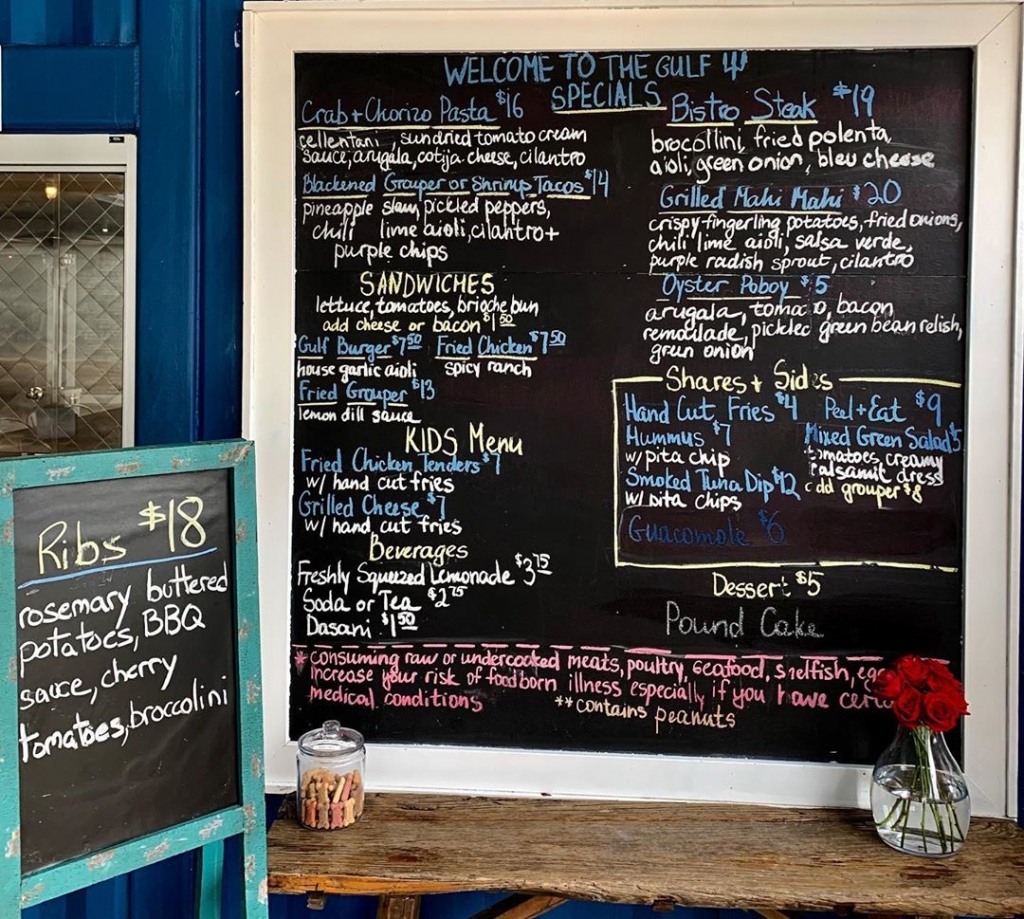 WELCOME TO THE GULF
SPECIALS
Crab + Chorizo Pasta $16
cellentani, sundried tomato cream
sauce, arugala, cotija cheese, cilantro
Blackened Grouper or Shrimp Tacos $14
pineapple slaw, pickled peppers,
chili lime aioli, cilantro +
purple chips
SANDWICHES
lettuce, tomatoes, brioche bun
add cheese or bacon $1.50
Gulf Burger $7.50 Fried Chicken $7.50
house garlic aioli spicy ranch
Fried Grouper $13
lemon dill sauce
KIDS Menu
Fried Chicken Tenders $7
w/ hand cut fries
Grilled Cheese $7
w/ hand cut fries
Beverages
Freshly Squeezed Lemonade $3.75
Soda or Tea $2.75
Dasani $1.50
Bistro Steak $19
brocollini, fried polenta,
aioli, green onion, bleu cheese
Grilled Mahi Mahi $20
crispy fingerling potatoes, fried onions,
chili lime aioli, salsa verde,
purple radish sprout, cilantro
Oyster Poboy $ 5
arugala, toma o, bacon
remoulade, pickled green bean relish,
green onion
Shares + Sides
Hand Cut Fries $4 Peel + Eat $9
Hummus $7 Mixed Green Salad $5
w/ pita chip tomatoes, creamy
balsamic dress
Smoked Tuna Dip $12 add grouper $8
w/ pita chips
Guacomole $6
Dessert $5
Pound Cake
* consuming raw or undercooked meats, poultry, seafood, shelfish, eg
increase your risk of foodborn illness especially if you have cert
medical conditions
**contains peanuts
Ribs $18
rosemary buttered
potatoes, BBQ
sauce, cherry
tomatoes, broccolini